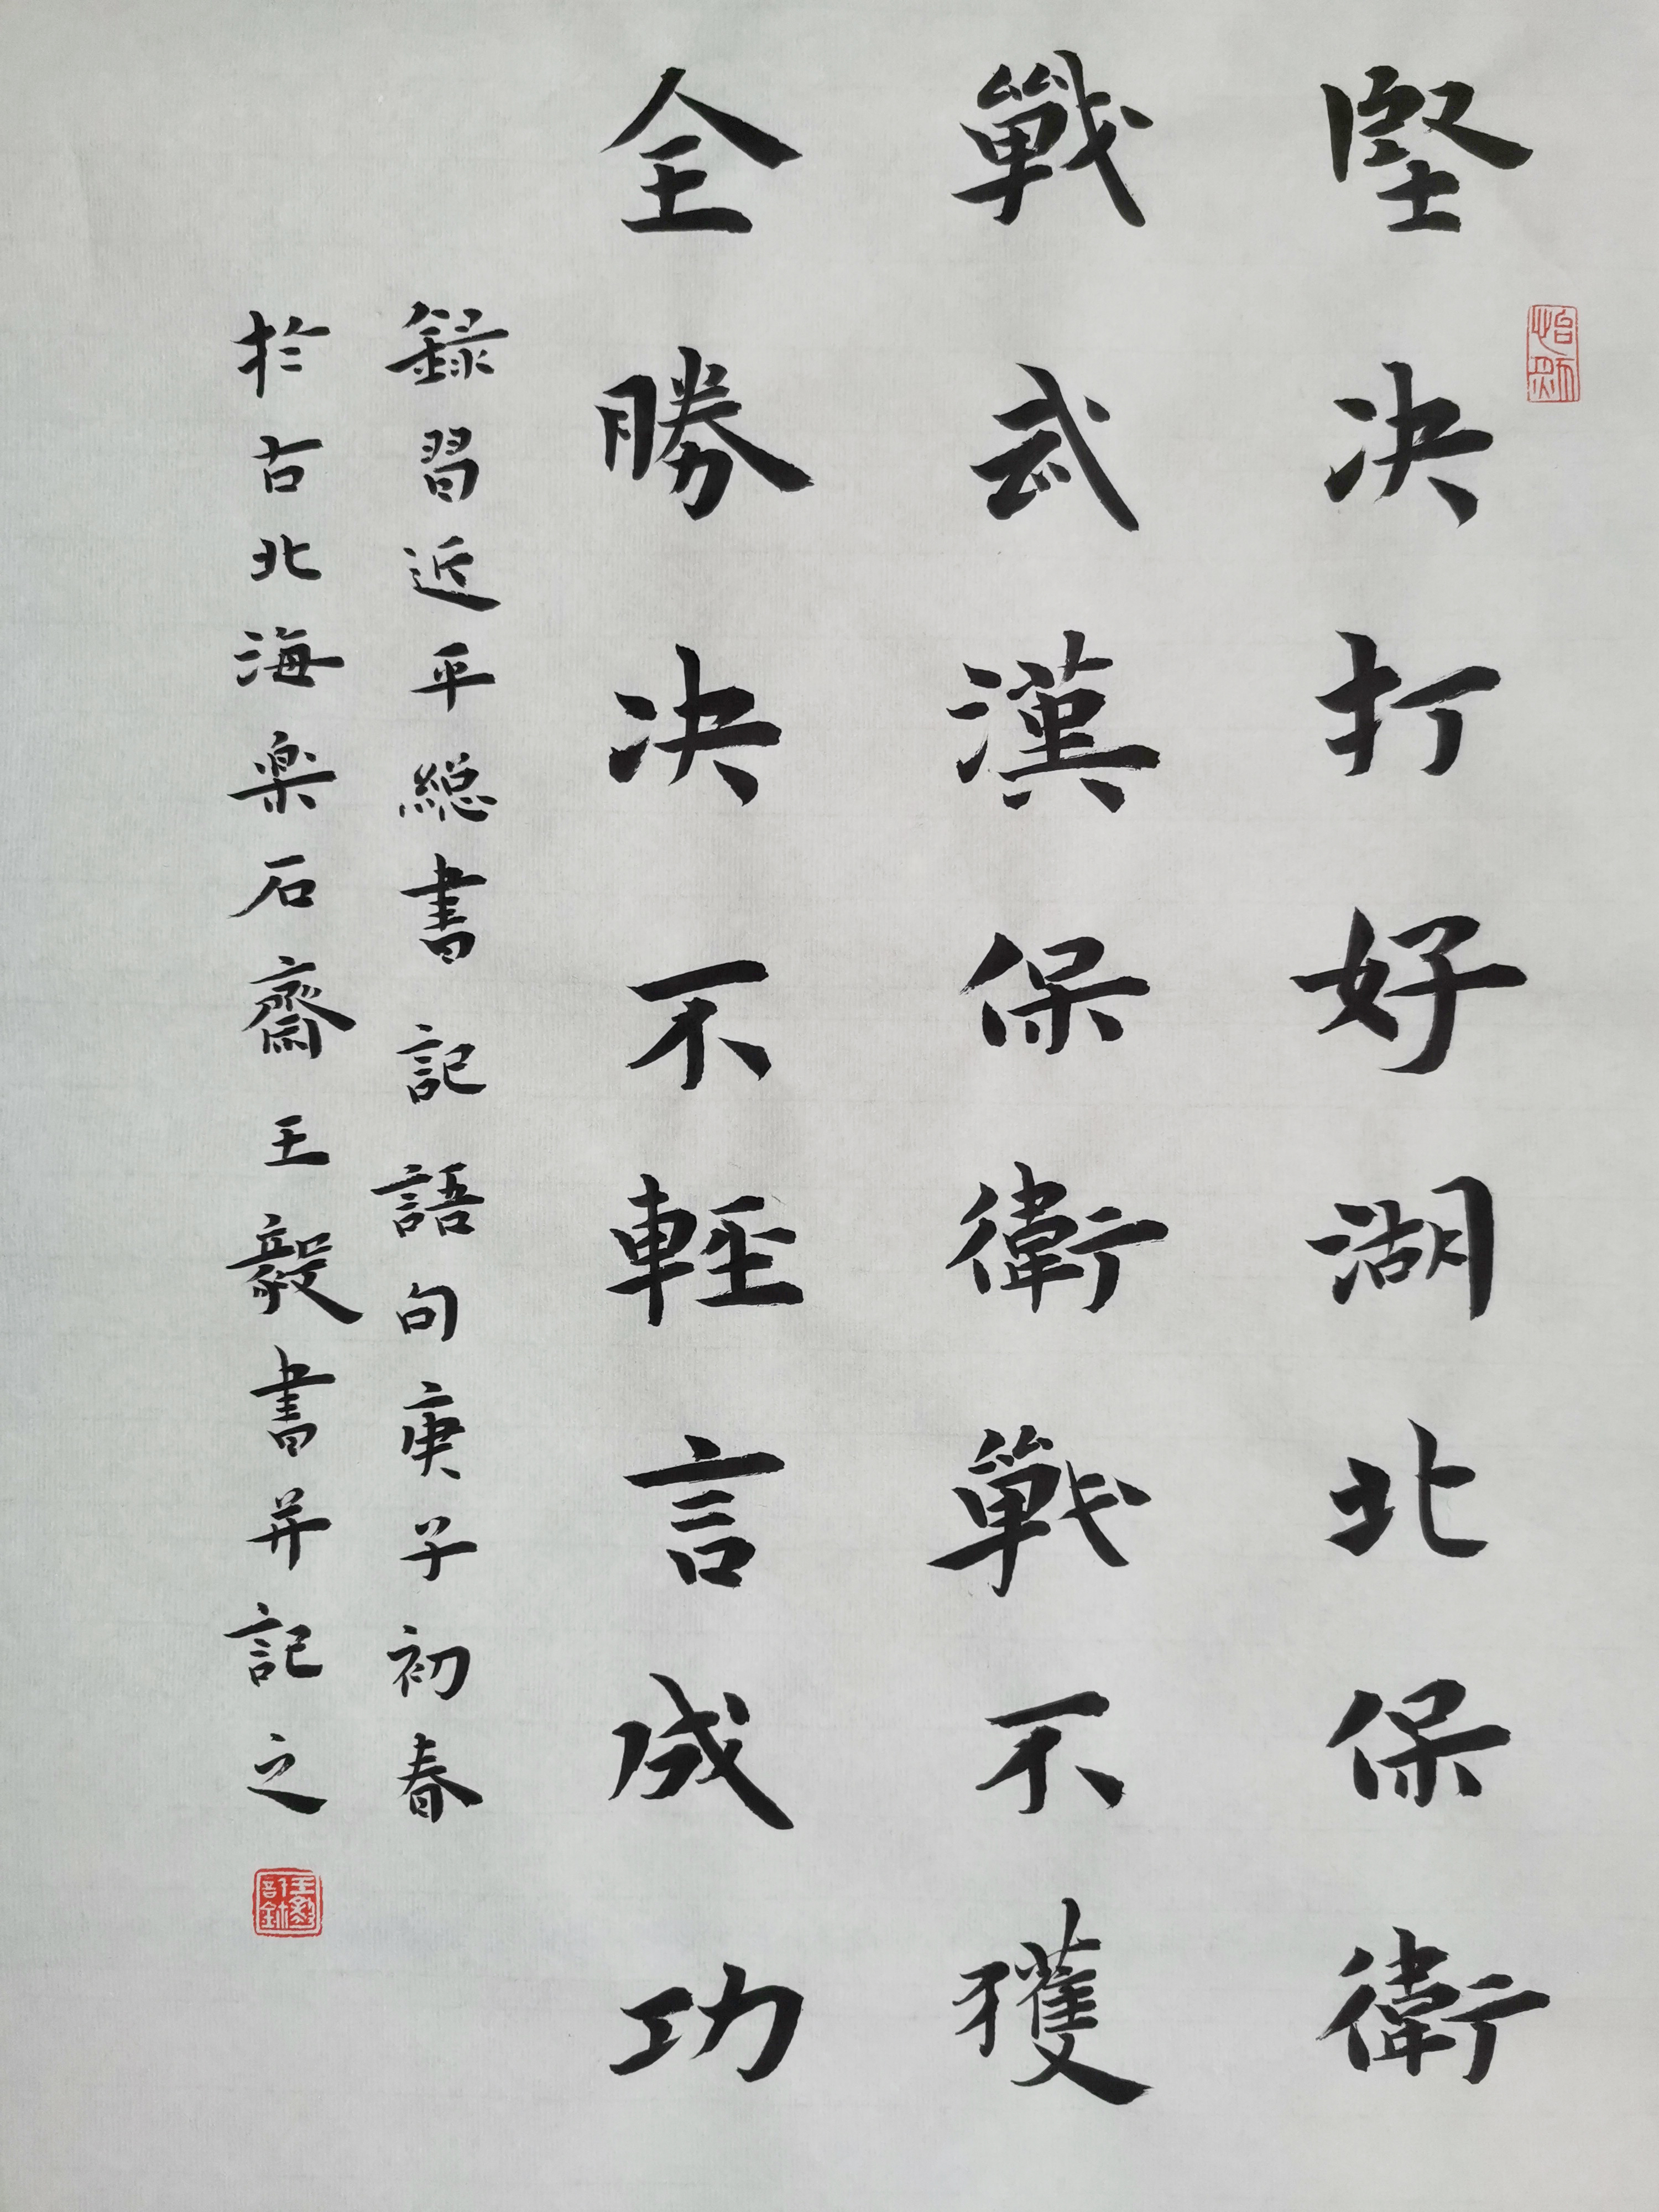 堅决打好湖北保衛
戰武漢保衛戰不獲
全勝决不輕言成功
録習近平総書記語句庚子初春
於古北海楽石齋王毅書并記之